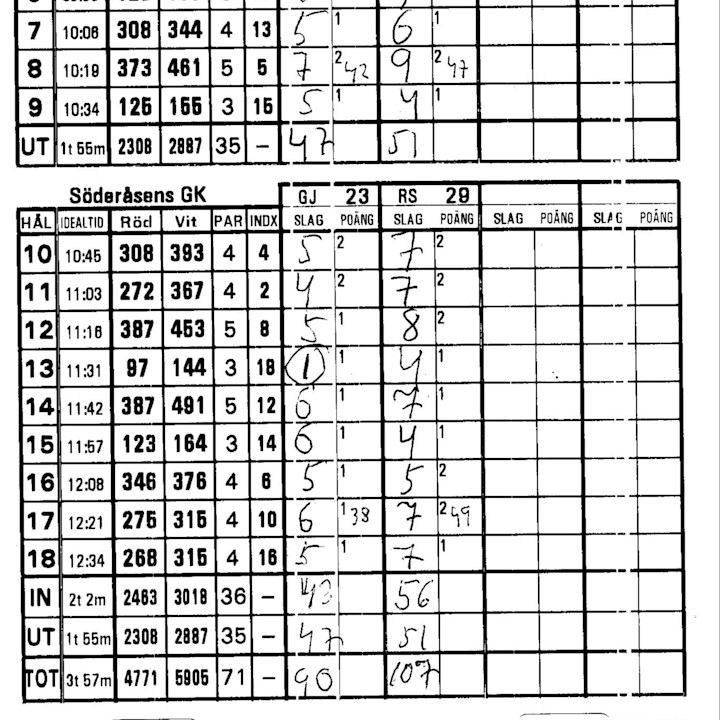 7 10:06 308 344 4 13 5 1 6 1
8 10:19 373 461 5 5 7 2 42 9 2 47
9 10:34 125 155 3 15 5 1 4 1
UT 1t 55m 2308 2887 35 – 47 51
Söderåsens GK GJ 23 RS 29
HÅL IDEALTID Röd Vit PAR INDX SLAG POÄNG SLAG POÄNG SLAG POÄNG SLAG POÄNG
10 10:45 308 393 4 4 5 2 7 2
11 11:03 272 367 4 2 4 2 7 2
12 11:16 387 453 5 8 5 1 8 2
13 11:31 97 144 3 18 1 1 4 1
14 11:42 387 491 5 12 6 1 7 1
15 11:57 123 164 3 14 6 1 4 1
16 12:08 346 376 4 6 5 1 5 2
17 12:21 275 315 4 10 6 1 38 7 2 49
18 12:34 268 315 4 16 5 1 7 1
IN 2t 2m 2463 3018 36 – 43 56
UT 1t 55m 2308 2887 35 – 47 51
TOT 3t 57m 4771 5905 71 – 90 107